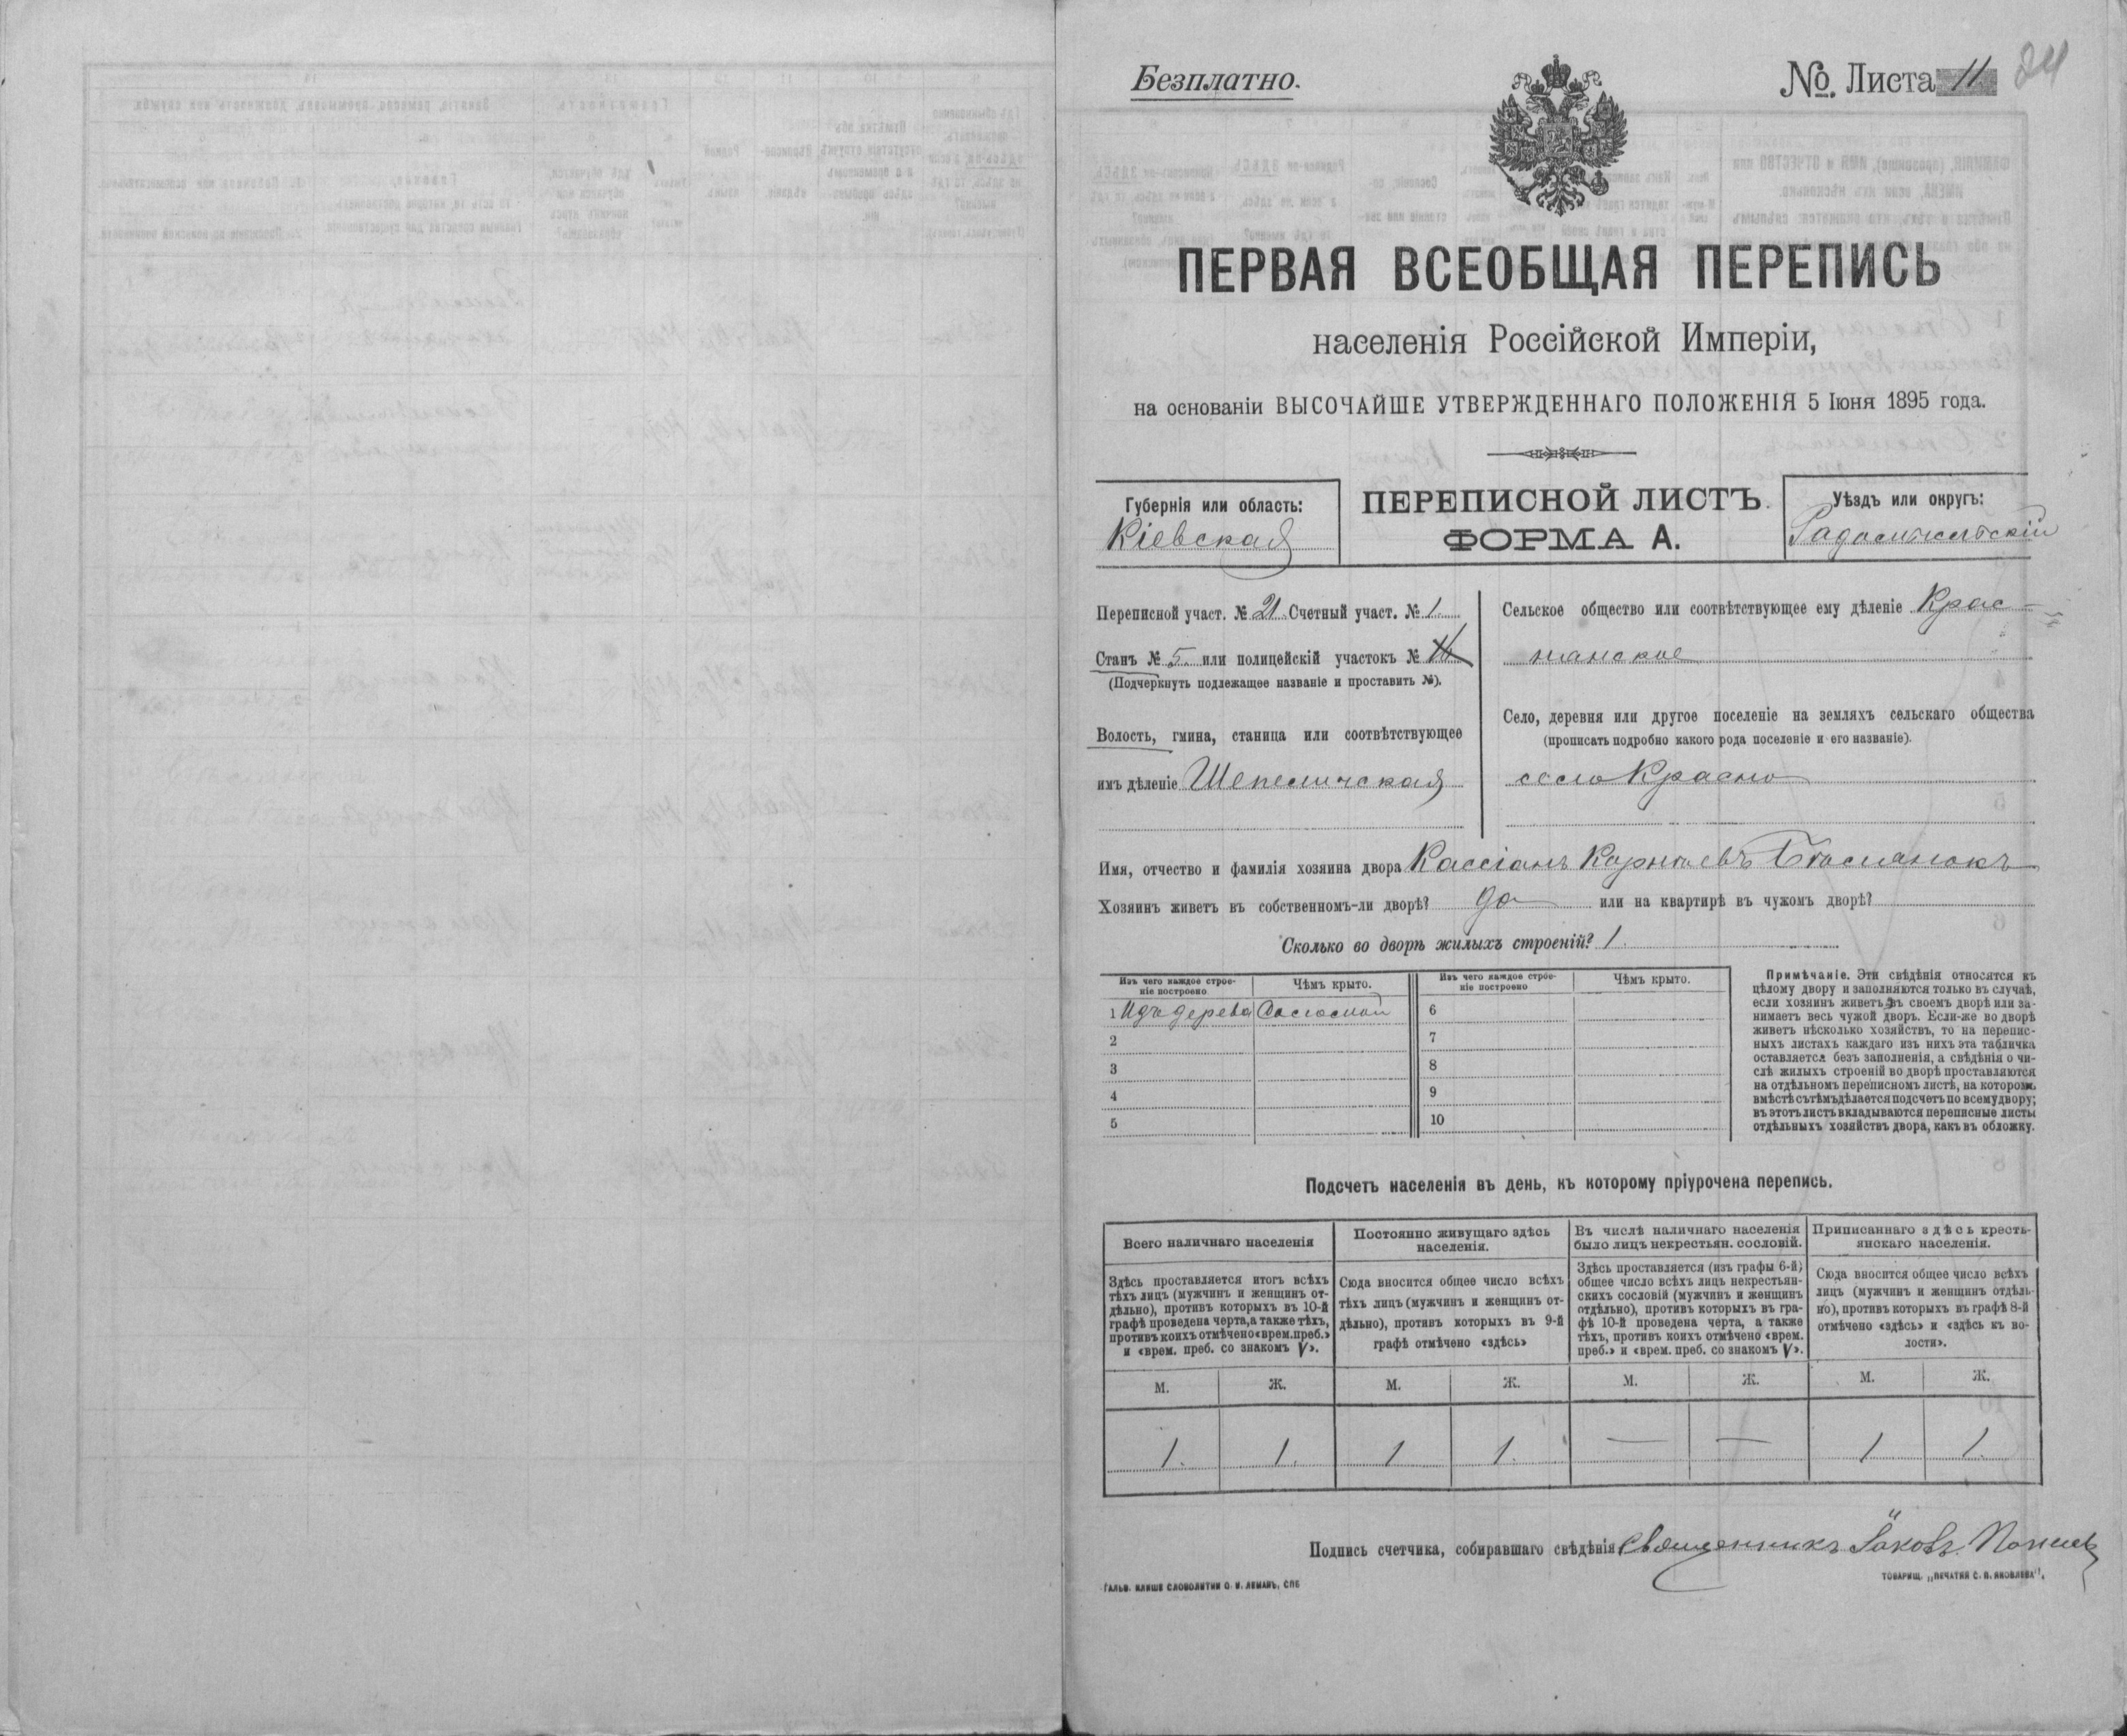 Безплатно.
№. Листа 11 24
ПЕРВАЯ ВСЕОБЩАЯ ПЕРЕПИСЬ
населенія Россійской Имперіи,
на основаніи ВЫСОЧАЙШЕ УТВЕРЖДЕННАГО ПОЛОЖЕНІЯ 5 Іюня 1895 года.
Губернія или область:
Кіевская
ПЕРЕПИСНОЙ ЛИСТЪ.
ФОРМА А.
Уѣздъ или округъ:
Радомысльскій
Переписной участ. № 21. Счетный участ. № 1.
Станъ № 5. или полицейскій участокъ №
(Подчеркнуть подлежащее названіе и проставить №).
Волость, гмина, станица или соотвѣтствующее
имъ дѣленіе Шепеличская
Сельское общество или соотвѣтствующее ему дѣленіе Крас-
нянское
Село, деревня или другое поселеніе на земляхъ сельскаго общества
(прописать подробно какого рода поселеніе и его названіе).
село Красно
Имя, отчество и фамилія хозяина двора Кассіанъ
Хозяинъ живетъ въ собственномъ-ли дворѣ? да или на квартирѣ въ чужомъ дворѣ?
Сколько во дворѣ жилыхъ строеній? 1.
Изъ чего каждое строе-
ніе построено
Чѣмъ крыто.
Изъ чего каждое строе-
ніе построено
Чѣмъ крыто.
1 Изъ дерева Соломой 6
2 7
3 8
4 9
5 10
Примѣчаніе. Эти свѣдѣнія относятся къ
цѣлому двору и заполняются только въ случаѣ,
если хозяинъ живетъ въ своемъ дворѣ или за-
нимаетъ весь чужой дворъ. Если-же во дворѣ
живетъ нѣсколько хозяйствъ, то на перепис-
ныхъ листахъ каждаго изъ нихъ эта табличка
оставляется безъ заполненія, а свѣдѣнія о чи-
слѣ жилыхъ строеній во дворѣ проставляются
на отдѣльномъ переписномъ листѣ, на которомъ
вмѣстѣ съ тѣмъ дѣлается подсчетъ по всему двору;
въ этотъ листъ вкладываются переписные листы
отдѣльныхъ хозяйствъ двора, какъ въ обложку.
Подсчетъ населенія въ день, къ которому пріурочена перепись.
Всего наличнаго населенія
Здѣсь проставляется итогъ всѣхъ
тѣхъ лицъ (мужчинъ и женщинъ от-
дѣльно), противъ которыхъ въ 10-й
графѣ проведена черта, а также тѣхъ,
противъ коихъ отмѣчено «врем. преб.»
и «врем. преб. со знакомъ V».
Постоянно живущаго здѣсь
населенія.
Сюда вносится общее число всѣхъ
тѣхъ лицъ (мужчинъ и женщинъ от-
дѣльно), противъ которыхъ въ 9-й
графѣ отмѣчено «здѣсь»
Въ числѣ наличнаго населенія
было лицъ некрестьян. сословій.
Здѣсь проставляется (изъ графы 6-й)
общее число всѣхъ лицъ некрестьян-
скихъ сословій (мужчинъ и женщинъ
отдѣльно), противъ которыхъ въ гра-
фѣ 10-й проведена черта, а также
тѣхъ, противъ коихъ отмѣчено «врем.
преб.» и «врем. преб. со знакомъ V».
Приписаннаго здѣсь кресть-
янскаго населенія.
Сюда вносится общее число всѣхъ
лицъ (мужчинъ и женщинъ отдѣль-
но), противъ которыхъ въ графѣ 8-й
отмѣчено «здѣсь» и «здѣсь къ во-
лости».
М. Ж. М. Ж. М. Ж. М. Ж.
1. 1. 1 1. — — 1 1.
Подпись счетчика, собиравшаго свѣдѣнія Священникъ Іаковъ
ГАЛЬВ. КЛИШЕ СЛОВОЛИТНИ О. И. ЛЕМАНЪ, СПБ
ТОВАРИЩ. „ПЕЧАТНЯ С. П. ЯКОВЛЕВА",